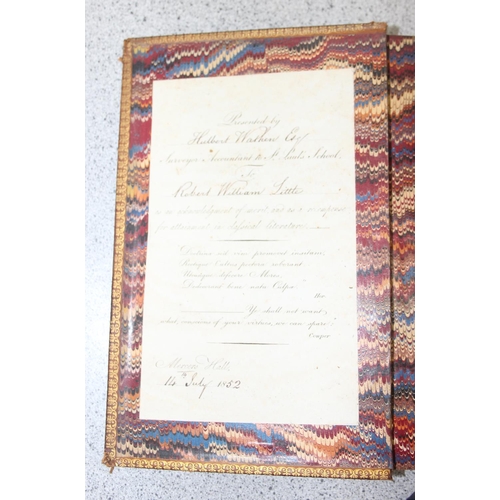 Presented by
Hulbert Wathen Esq
Surveyor Accountant to St Paul's School
to
Robert William Little
as an acknowledgment of merit, and as a
for attainment in Classical Literature
Doctrina sed vim promovet insitam,
Rectique cultus pectora roborant
Utcunque defecere Mores,
Dedecorant bene nata Culpæ
Hor
Ye shall not want
what memories of your virtues, we can spare
Cowper
Hall,
14th July 1852